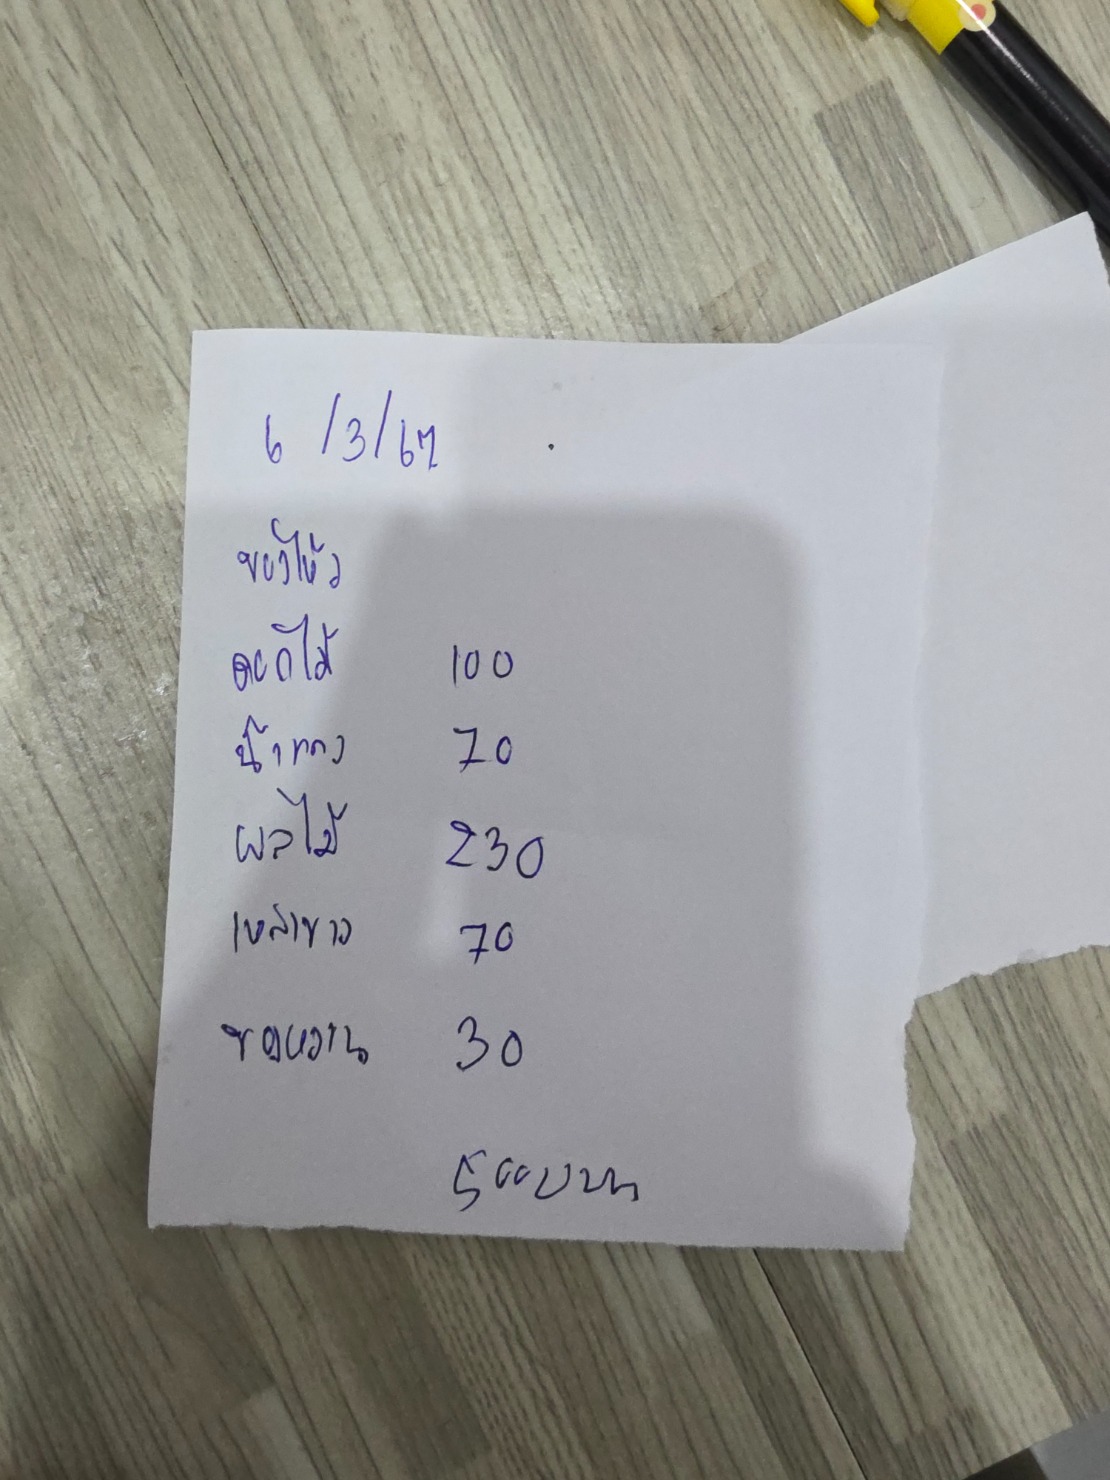 6 /3/67
ของไหว้
ดอกไม้ 100
น้ำแดง 70
ผลไม้ 230
เหล้าขาว 70
ขดหวาน 30
500บาท